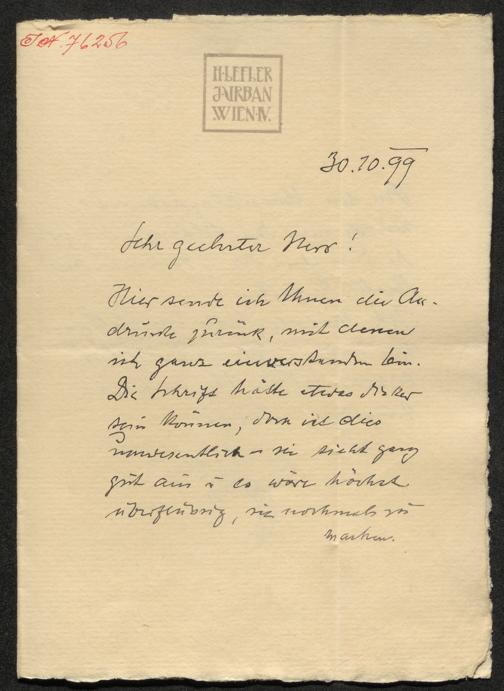 I.N. 76256
H·LEFLER
J·URBAN
WIEN·IV.
30.10.99
Sehr geehrter Herr!
Hier sende ich Ihnen die An-
drucke zurück, mit denen
ich ganz einverstanden bin.
Die Schrift hätte etwas dicker
sein können, doch ist dies
unwesentlich – sie sieht ganz
gut aus u es wäre höchst
überflüssig, sie nochmals zu
machen.